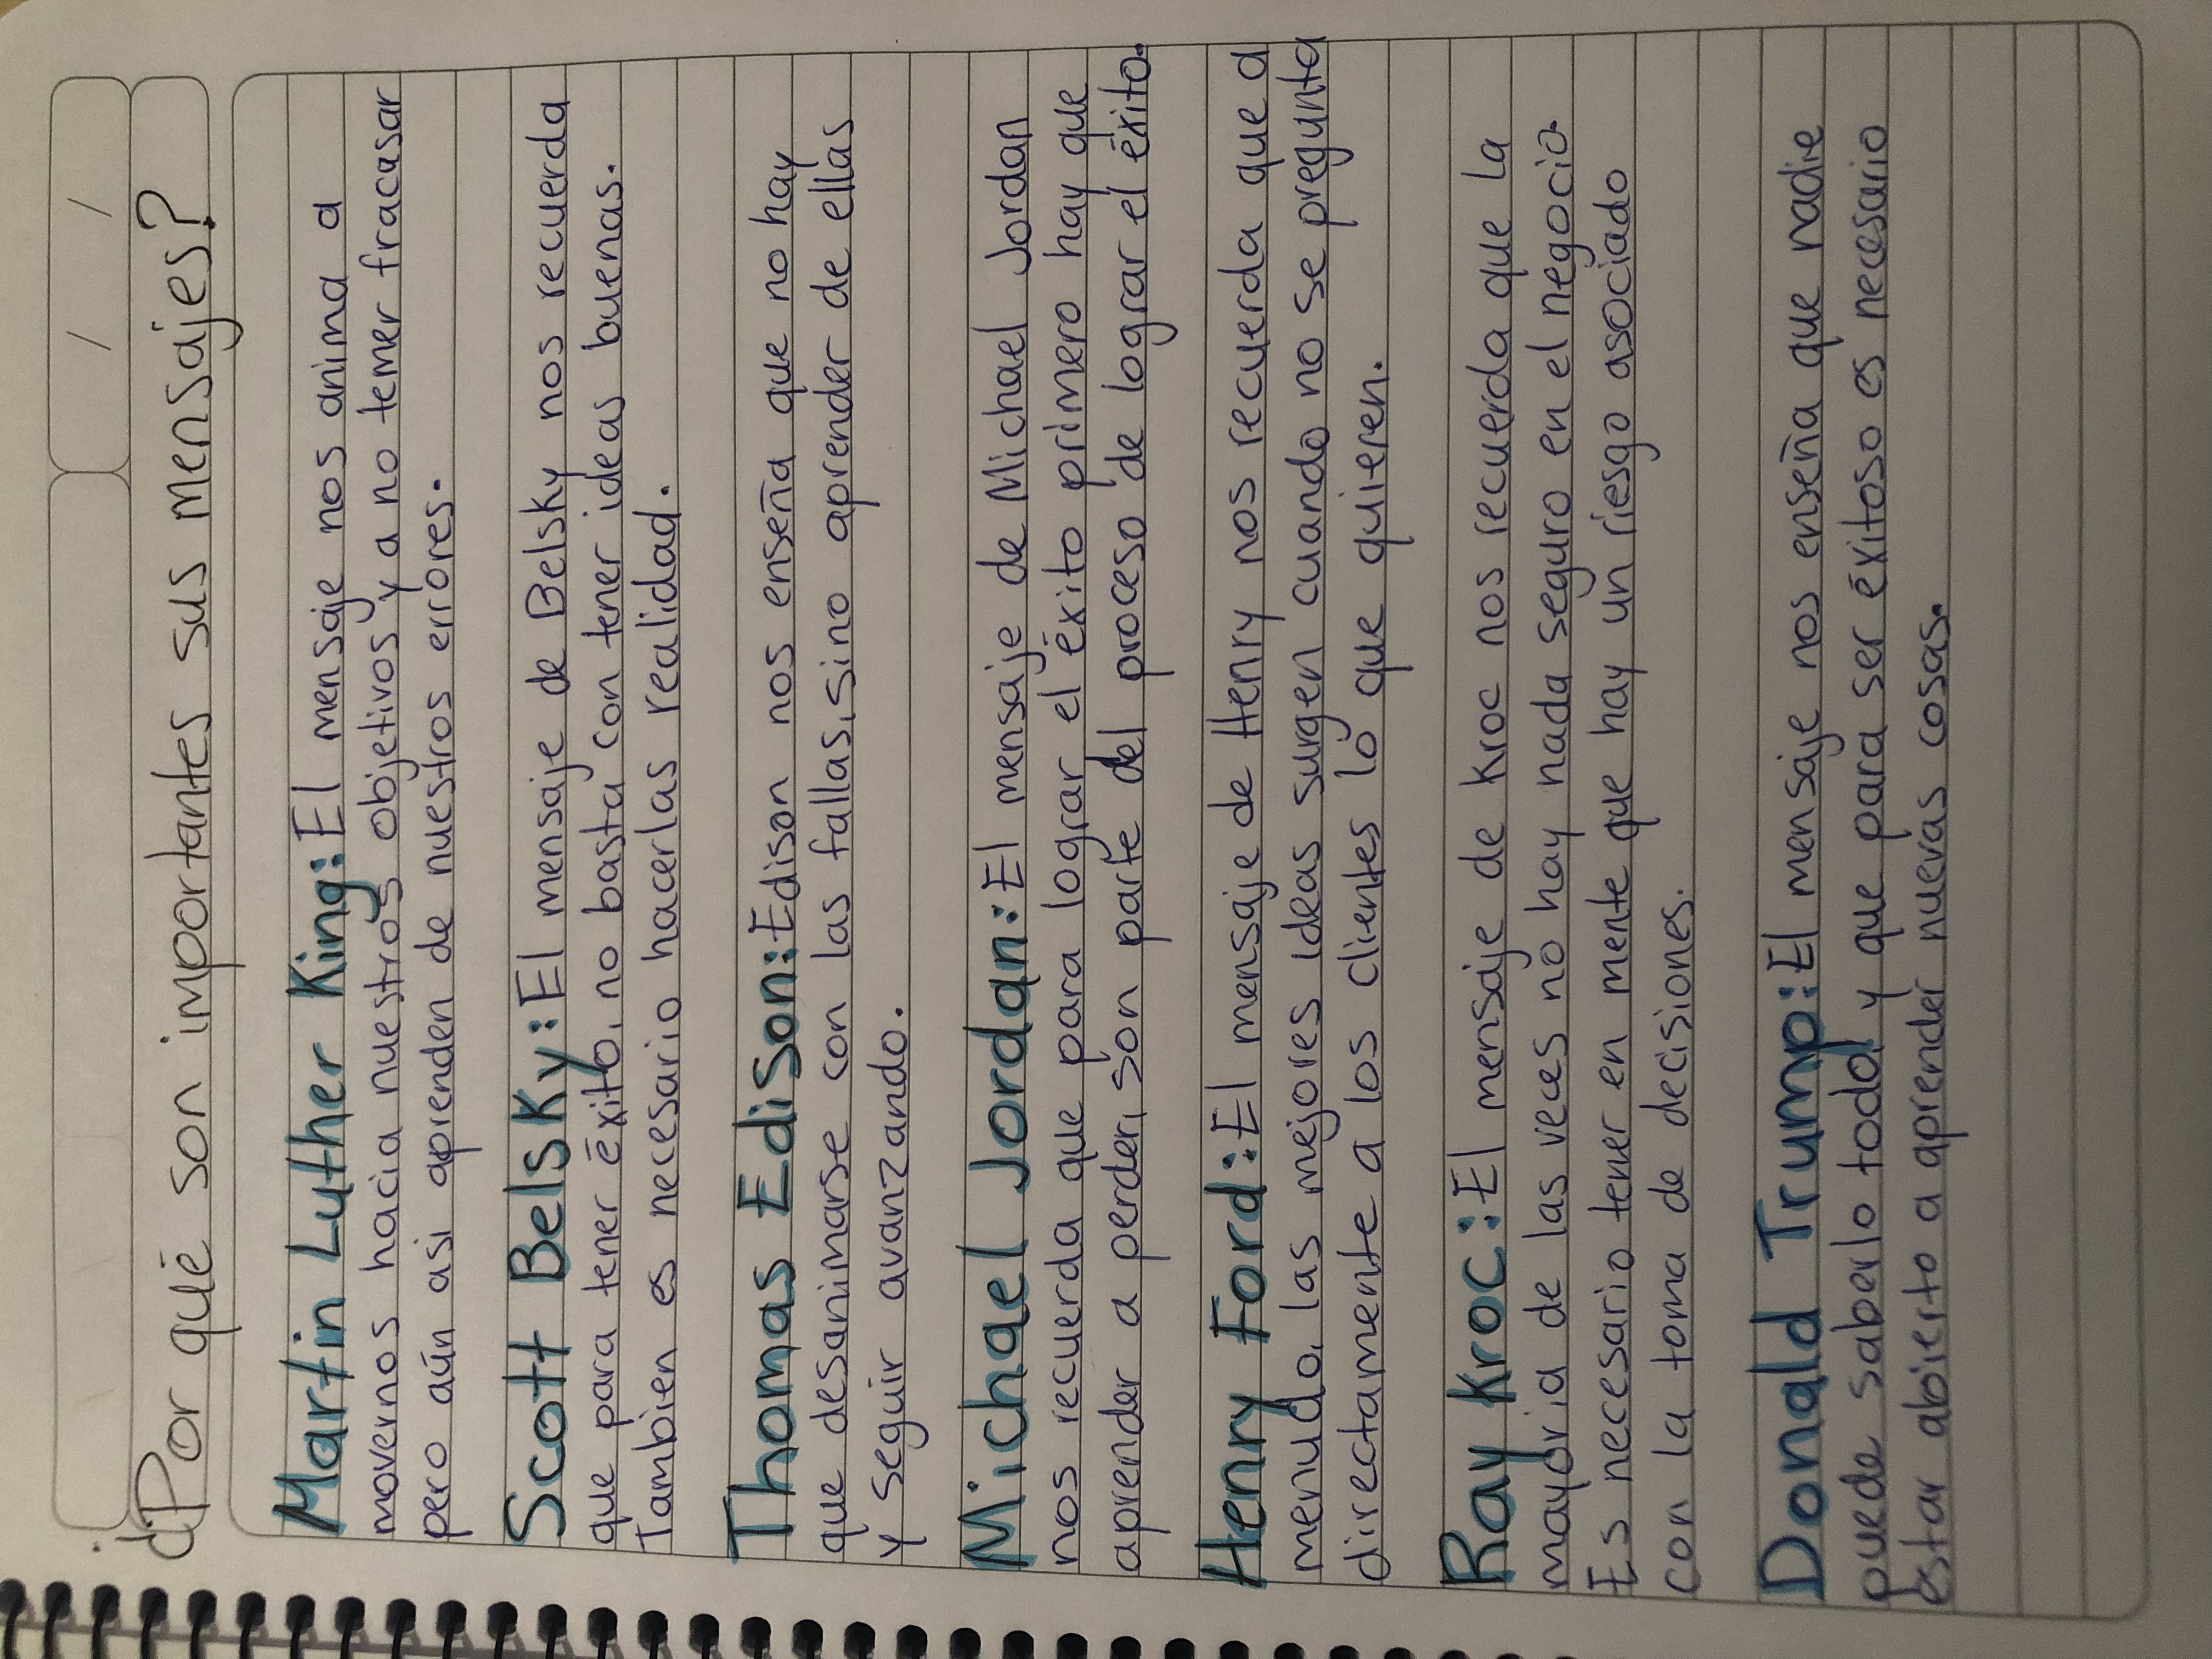 ¿Por qué son importantes sus mensajes?
Martin Luther King: El mensaje nos anima a
movernos hacia nuestros objetivos y a no temer fracasar
pero aún asi aprenden de nuestros errores.
Scott Belsky: El mensaje de Belsky nos recuerda
que para tener éxito, no basta con tener ideas buenas.
Tambien es necesario hacerlas realidad.
Thomas Edison: Edison nos enseña que no hay
que desanimarse con las fallas, sino aprender de ellas
y seguir avanzando.
Michael Jordan: El mensaje de Michael Jordan
nos recuerda que para lograr el éxito primero hay que
aprender a perder, son parte del proceso de lograr el éxito.
Henry Ford: El mensaje de Henry nos recuerda que a
menudo, las mejores ideas surgen cuando no se pregunta
directamente a los clientes lo que quieren.
Ray Kroc: El mensaje de Kroc nos recuerda que la
mayoria de las veces no hay nada seguro en el negocio.
Es necesario tener en mente que hay un riesgo asociado
con la toma de decisiones.
Donald Trump: El mensaje nos enseña que nadie
puede saberlo todo, y que para ser éxitoso es necesario
estar abierto a aprender nuevas cosas.